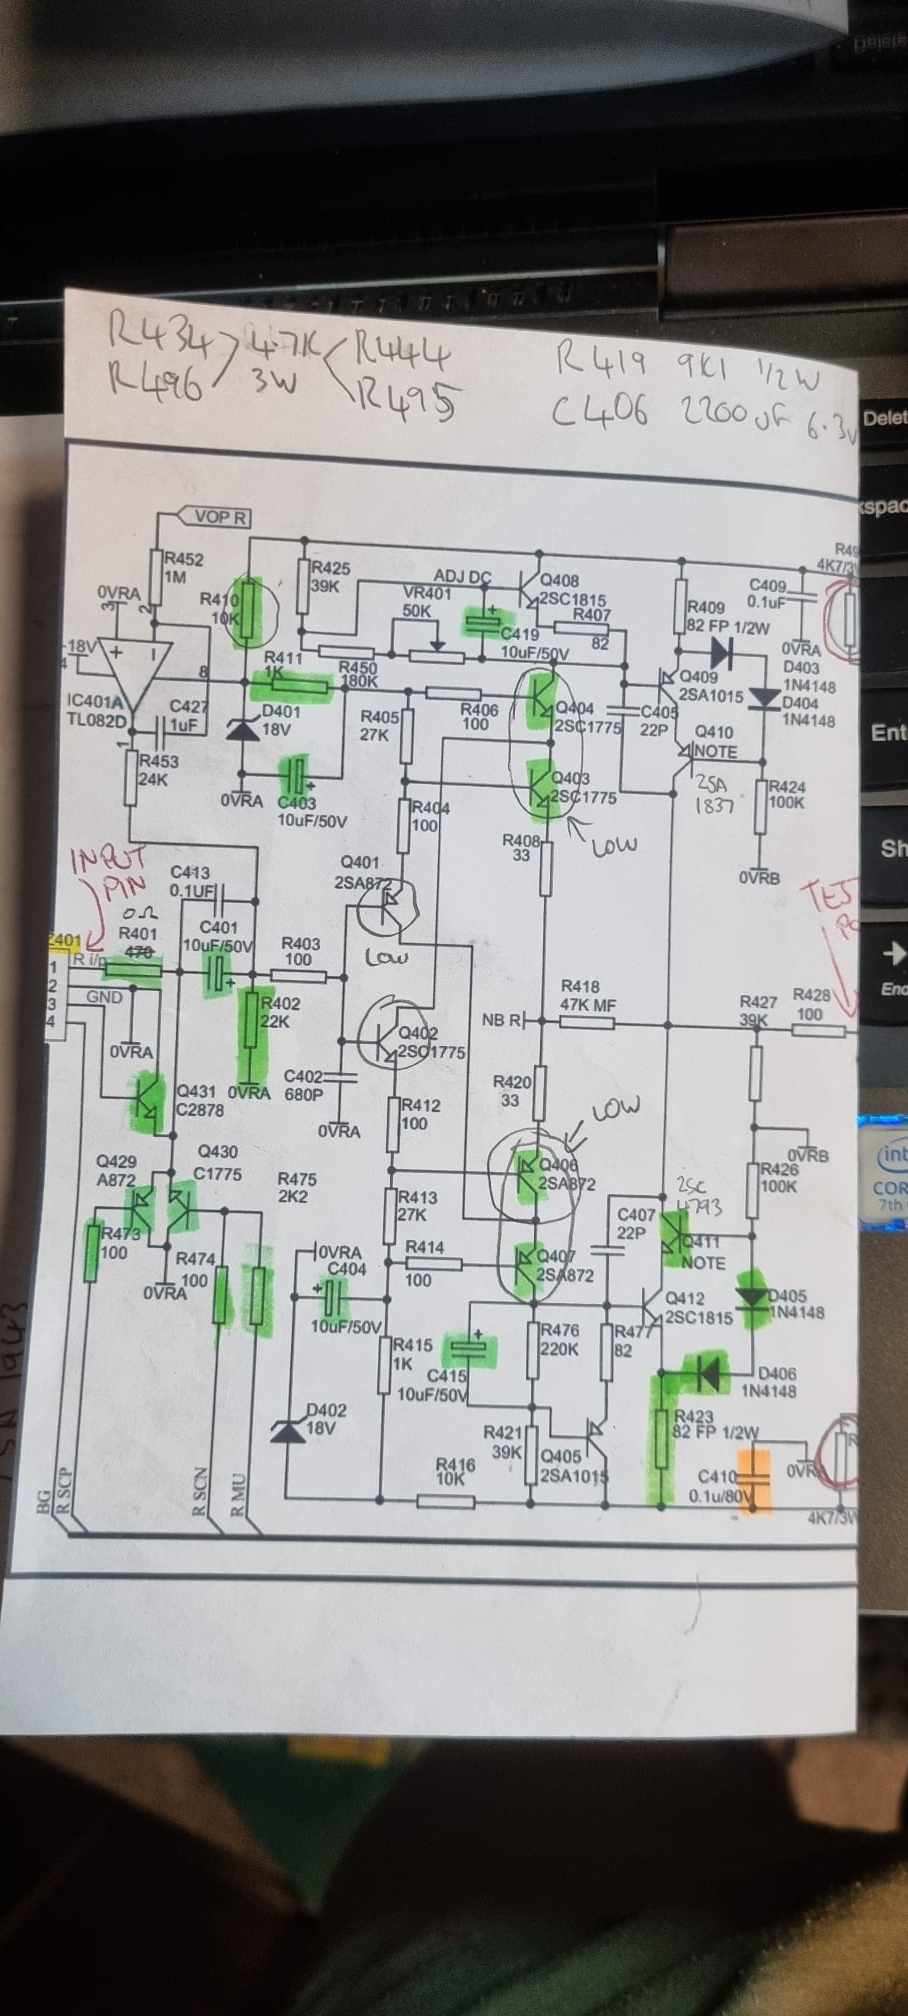 R434 4.7K R444
R496 3W R495
R419 9K1 1/2W
C406 2200uF 6.3v
VOP R
R452
1M
0VRA
3
2
-18V
4
8
IC401A
TL082D
1
C427
1uF
R453
24K
R410
10K
R411
1K
D401
18V
0VRA
C403
10uF/50V
R425
39K
ADJ DC
VR401
50K
R450
180K
C419
10uF/50V
Q408
2SC1815
R407
82
R405
27K
R406
100
Q404
2SC1775
Q403
2SC1775
LOW
R404
100
R408
33
C405
22P
R409
82 FP 1/2W
Q409
2SA1015
Q410
NOTE
2SA
1837
C409
0.1uF
0VRA
D403
1N4148
D404
1N4148
R424
100K
0VRB
R49
4K7/3
Q401
2SA872
LOW
INPUT
PIN
0Ω
R401
470
401
R i/p
1
2
3
4
GND
0VRA
C413
0.1UF
C401
10uF/50V
R402
22K
0VRA
R403
100
Q402
2SC1775
C402
680P
0VRA
NB R
R418
47K MF
R427
39K
R428
100
TES
PO
R420
33
LOW
Q431
C2878
Q430
C1775
Q429
A872
R473
100
R474
100
0VRA
R475
2K2
R412
100
R413
27K
R414
100
Q406
2SA872
Q407
2SA872
0VRB
R426
100K
C407
22P
2SC
4793
Q411
NOTE
Q412
2SC1815
D405
1N4148
D406
1N4148
0VRA
C404
10uF/50V
R415
1K
C415
10uF/50V
R476
220K
R477
82
R421
39K
Q405
2SA1015
R423
82 FP 1/2W
C410
0.1u/80V
0VRA
R
4K7/3W
D402
18V
R416
10K
BG
R SCP
R SCN
R MU
Delete
Delet
kspac
Ent
Sh
End
int
COR
7th